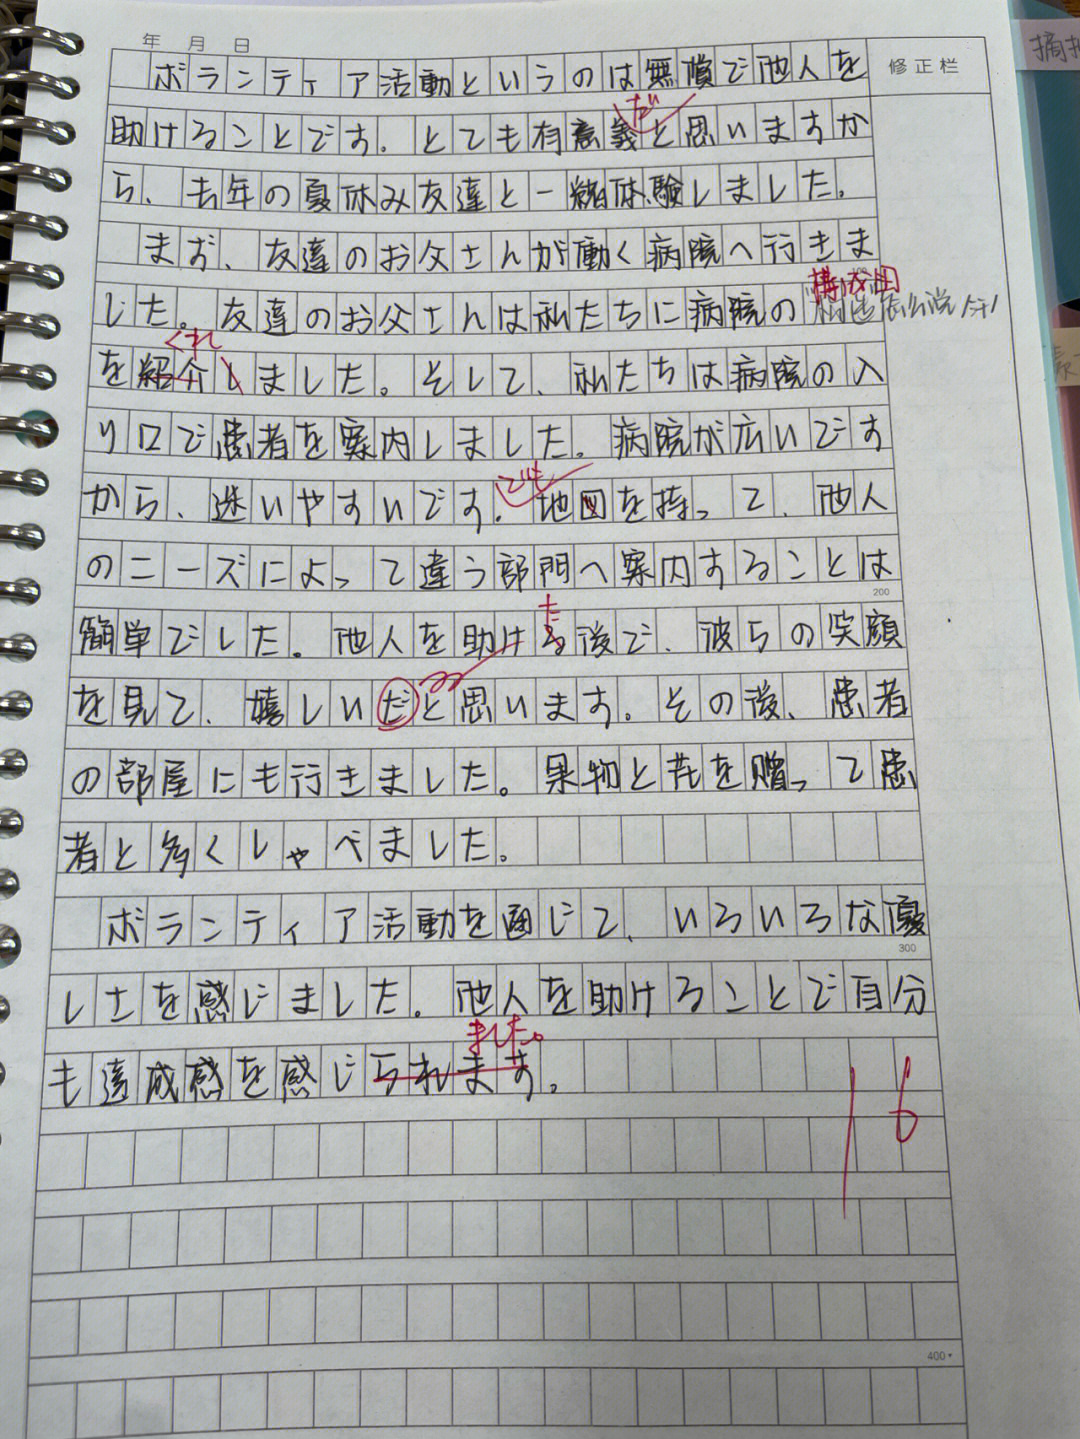 年 月 日
修正栏
摘
ボランティア活動というのは無償で他人を
だ
助けることです。とても有意義と思いますか
ら、去年の夏休み友達と一緒体験しました。
まず、友達のお父さんが働く病院へ行きま
構成図
した。友達のお父さんは私たちに病院の
くれ
を紹介しました。そして、私たちは病院の入
り口で患者を案内しました。病院が広いです
でも
から、迷いやすいです。地図を持って、他人
のニーズによって違う部門へ案内することは
200
た
簡単でした。他人を助ける後で、彼らの笑顔
を見て、嬉しいだと思います。その後、患者
の部屋にも行きました。果物と花を贈って患
者と多くしゃべました。
ボランティア活動を通じて、いろいろな優
300
しさを感じました。他人を助けることで自分
ました。
も達成感を感じられます。
16
400